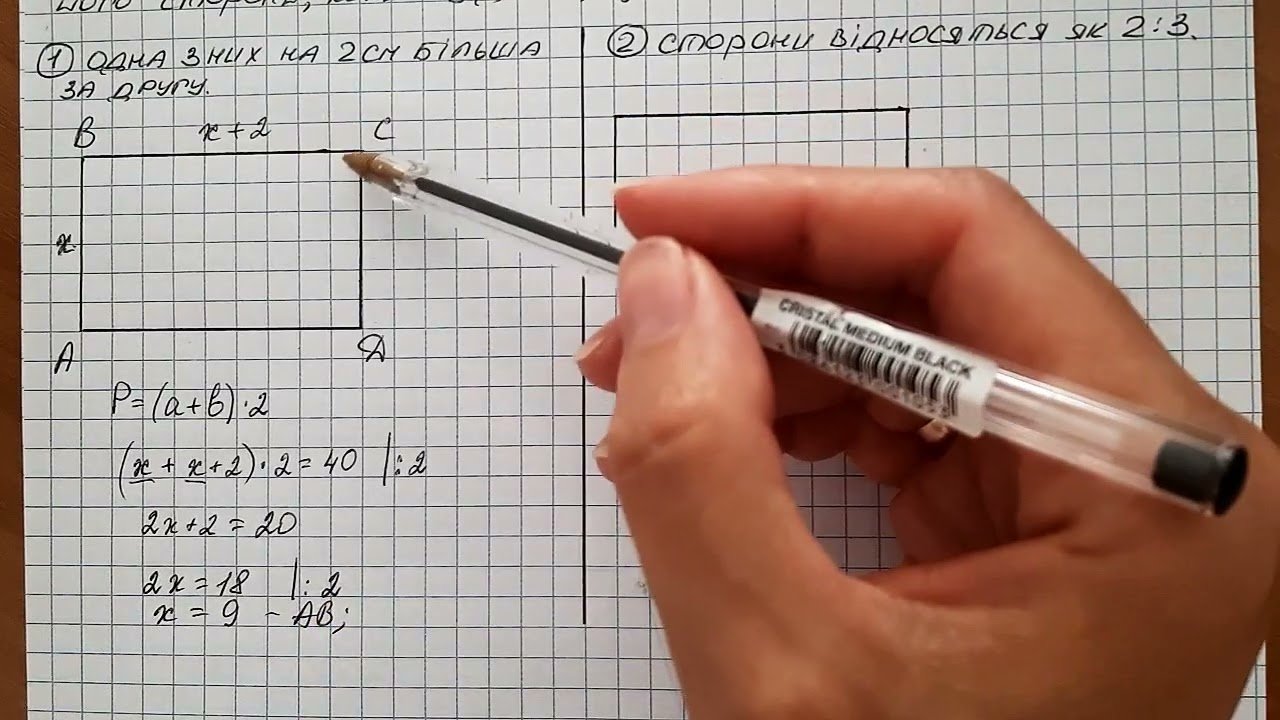 ① ОДНА З НИХ НА 2СМ БІЛЬША
ЗА ДРУГУ.
② СТОРОНИ ВІДНОСЯТЬСЯ ЯК 2:3.
B x+2 C
x
A D
P=(a+b)·2
(x+x+2)·2=40 |:2
2x+2=20
2x=18 |:2
x=9 - AB;
CRISTAL MEDIUM BLACK